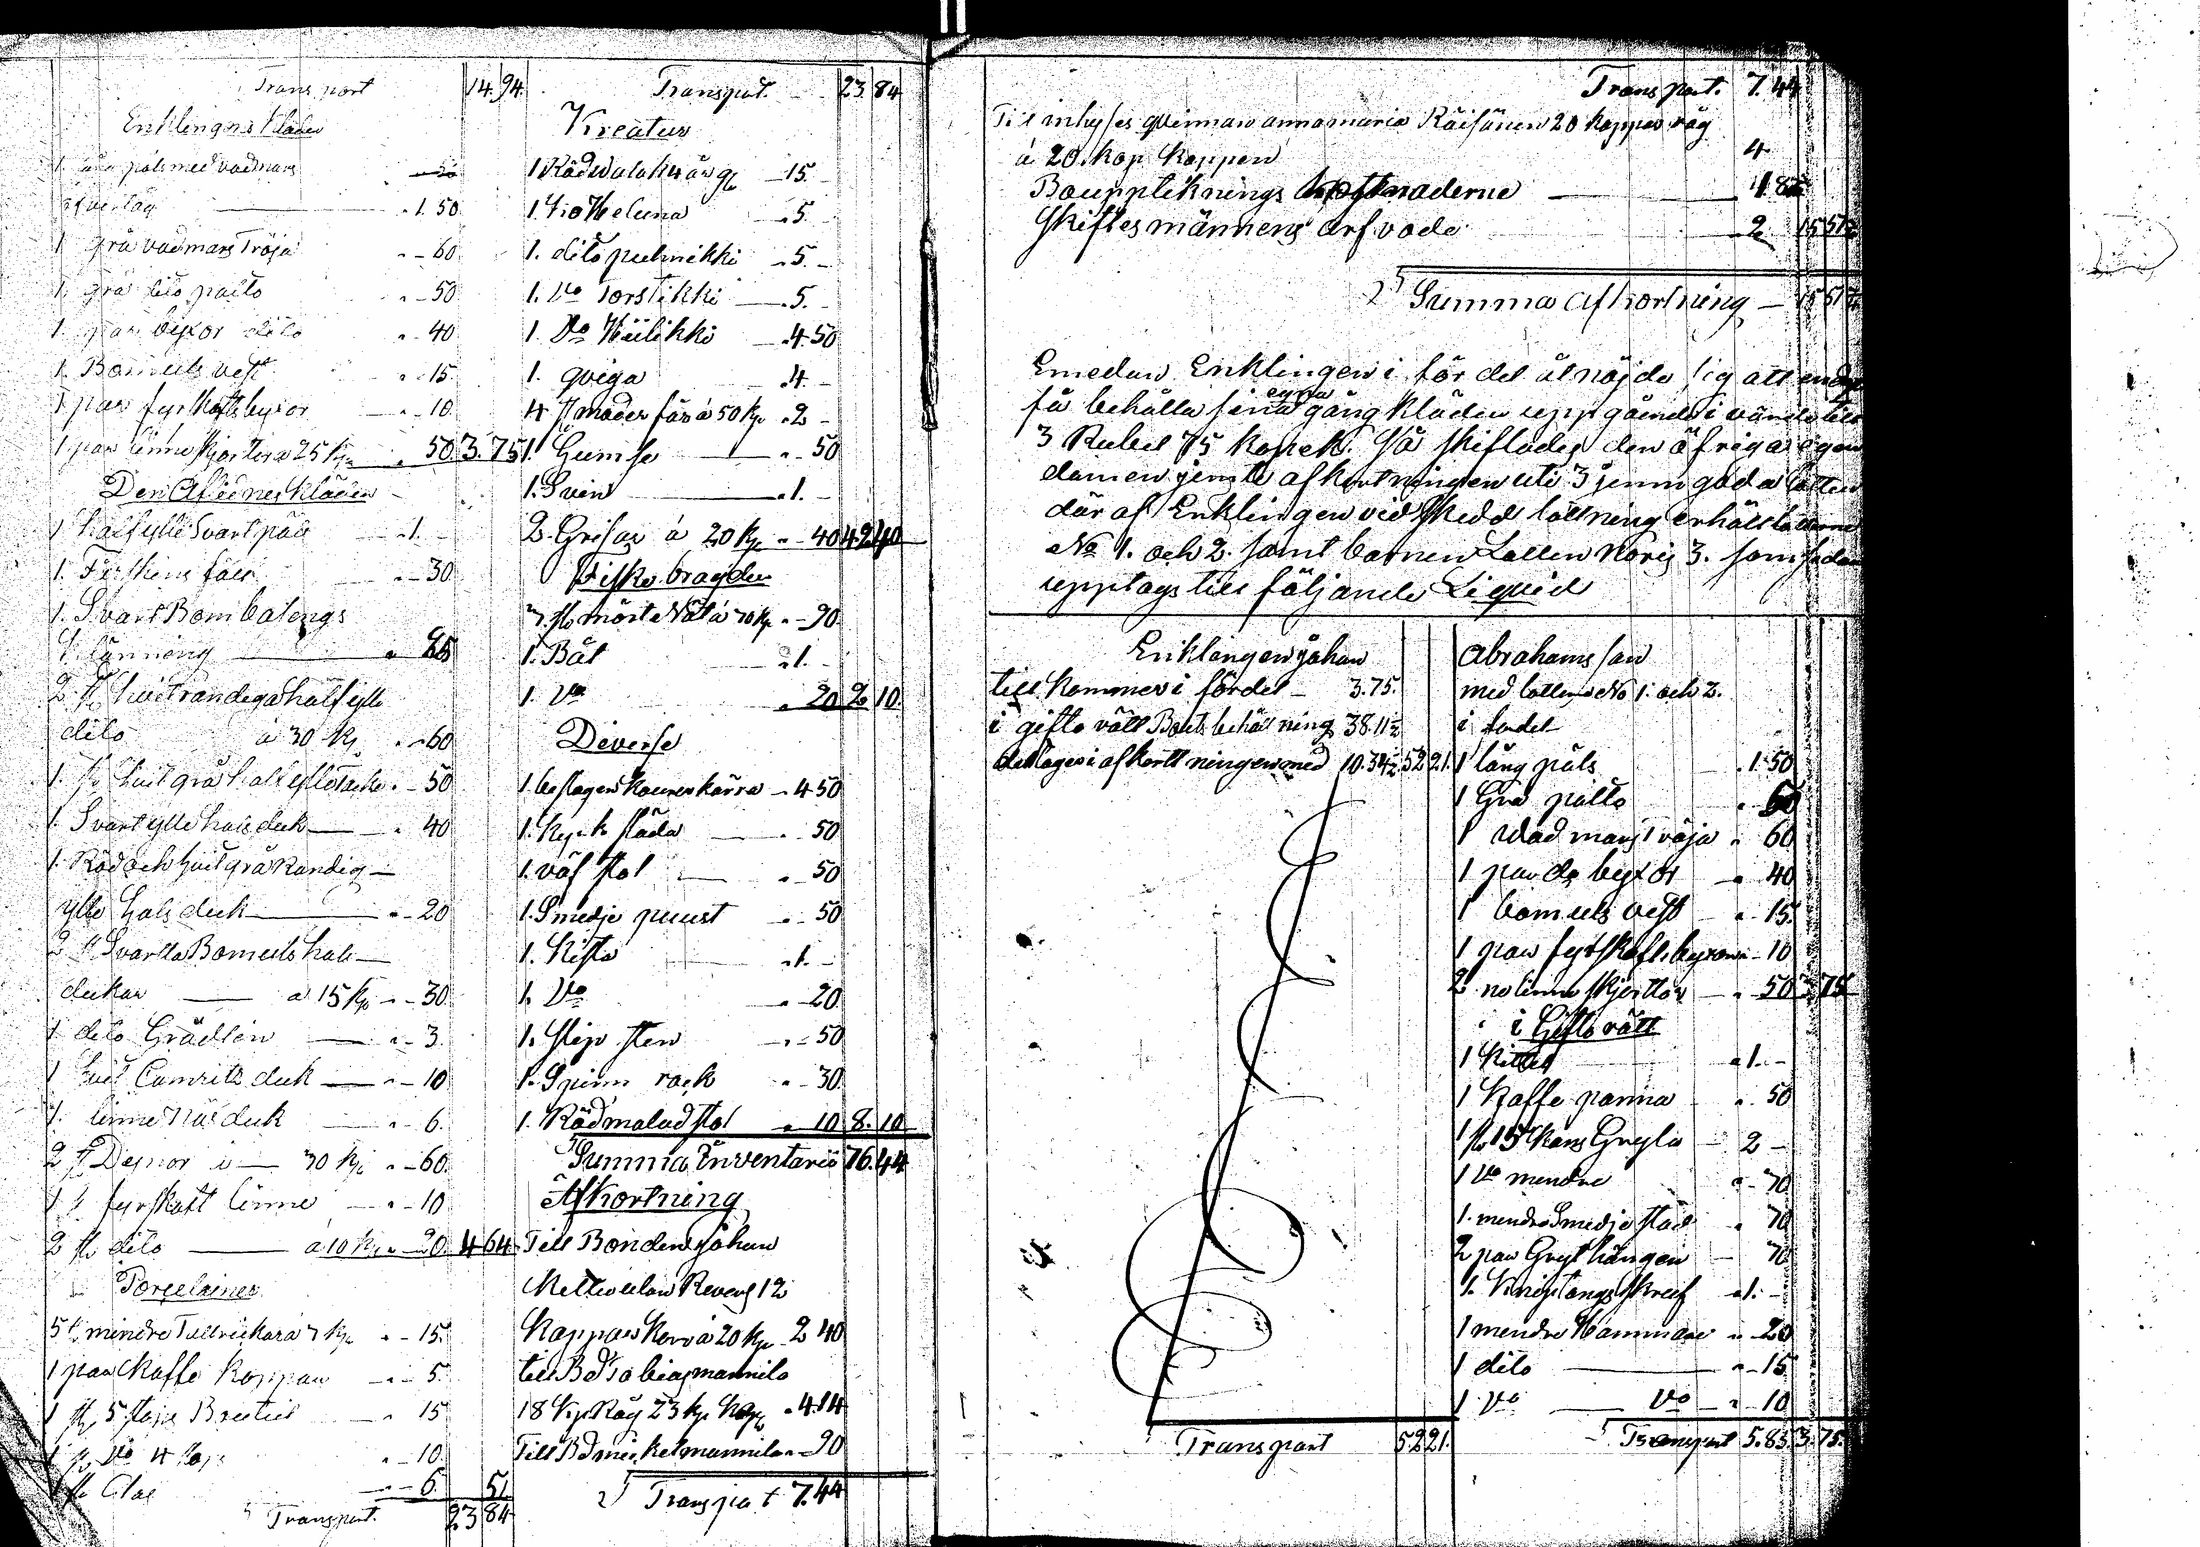 Transport 14. 94.
Enklingens kläder
1. päls med vadmans
öfvertåg " 1. 50
1 grå vadmans Tröja " - 60
1. grå dito palto " - 50
1. par byxor dito " - 40
1. Bomuls vest " - 15
1 par fyrskafts byxor " - 10
1 par linne skjortor a 25 Kp " 50. 3. 75
Den Aflednes kläder
1 halfylle Svart päls " 1. -
1. Fårskins fäll " - 30
1. Svart Bombasengs
2 st. hvitrandiga halfylle
dito á 30 Kp " - 60
1. st. hvit grå halfylle " - 50
1. Svart ylle halsduk " - 40
1. Röd och hvit grå Randig
ylle halsduk " - 20
2 st. Svarta Bomuls hals
dukar a 15 Kp " - 30
1 dito Grädlin " - 3.
1 hvit Camrits duk " - 10
1. linne Näsduk " - 6.
2 st. 30 Kp " - 60.
1 st fyrskaft linne " - 10
2 st. dito á 10 Kp " 20. 4 64
Porcelainer
5 st. mindre Tallrickar a 3 Kp " - 15.
1 par Kaffe Koppar " - 5.
1 st. 5 stops Buteul " 15
1 st. Do 4 stops " - 10.
1 st. Glas " - 6. 51
Transport. 23 84
Transport. 23. 84
Kreatur
1. Röd valak 4 år gl - 15. -
1. Ko Heluna " 5.
1. dito puhnikki " 5. -
1. Do Torstikki " 5. -
1. Do Hiilikki - 4. 50
1. qviga " 4. -
4 st moder får á 50 Kp " 2 -
1. Gumse " - 50
1. Svin " 1. -
2. Grisar á 20 Kp " - 40 42 40
Fiske bragder
3. st. mört Nät á 30 Kp " - 90
1. Båt " 1. -
1. Do " 20 2. 10.
Diverse
1. beslagen kärra " 4 50
1. Kyrk släda " - 50
1. väf stol " - 50
1. Smedje puust " - 50
1. Kista " 1. -
1. Do " - 20
1. slip sten " - 50
1. Spinn rock " - 30
1. Rödmalad stol " 10 8. 10
Summa Inventarie 76. 44
Afkortning
Till Bonden Johan
Revers 12
Kappar Korn a 20 Kp - 2 40
till Bd Tobias mannila
18 Kp Råg 23 Kp Kapp " 4. 14
Till Bd mikel mannila " - 90
Transport 7. 44
Transport. 7. 44
Till inhyses qvinnan anna maria Räisänen 20 kappar råg
á 20. Kop Kappen 4.
Bouppteknings kostnaderne 1. 83
Skiftesmännens arfvode 2 15 51½
Summa afkortning - 15 51½
Emedan Enklingen i fördel åtnöjde sig att endast
få behålla sina egna gång kläder uppgående i värde till
3 Rubel 75 Kopek. Så skiftades den öfriga egen
domen jemte afkortningen uti 3 jemn goda lotter
där af Enklingen vid skedd lottning erhållit lotterne
No 1. och 2. samt barnen Lotten Noris 3. som sedan
upptogs till följande Liquid
Enklingen Johan
till kommer i fördel - 3. 75.
i gifto rätt Boets behållning 38. 11½
deltager i afkortningen med 10. 34½ 52 21.
Transport 52 21.
Abrahamsson
med lotterne No 1. och 2.
i fordel
1 lång päls " 1. 50
1 Grå palto " 50
1 Vadmans tröja " 60
1 par do byxor " 40
1 bomuls vest " 15.
1 par fyrskafts byxor " - 10
2 no linne skjortor " 50 3 75
i Gifto rätt
1 Kittel " 1. -
1 Kaffe panna " 50
1 st. 15 Kans Gryta - 2 -
1 Do mendre " - 70
1. mendre Smedje städ " 70
2 par Gryt hängen - 70
1. Kniptångs skruf " 1. -
1 mendre Hammare " 20
1 dito " - 15
1 Do Do " 10
Transport 5. 85. 3. 75.